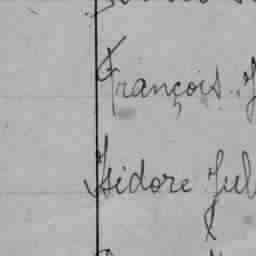 François J
Isidore Jul